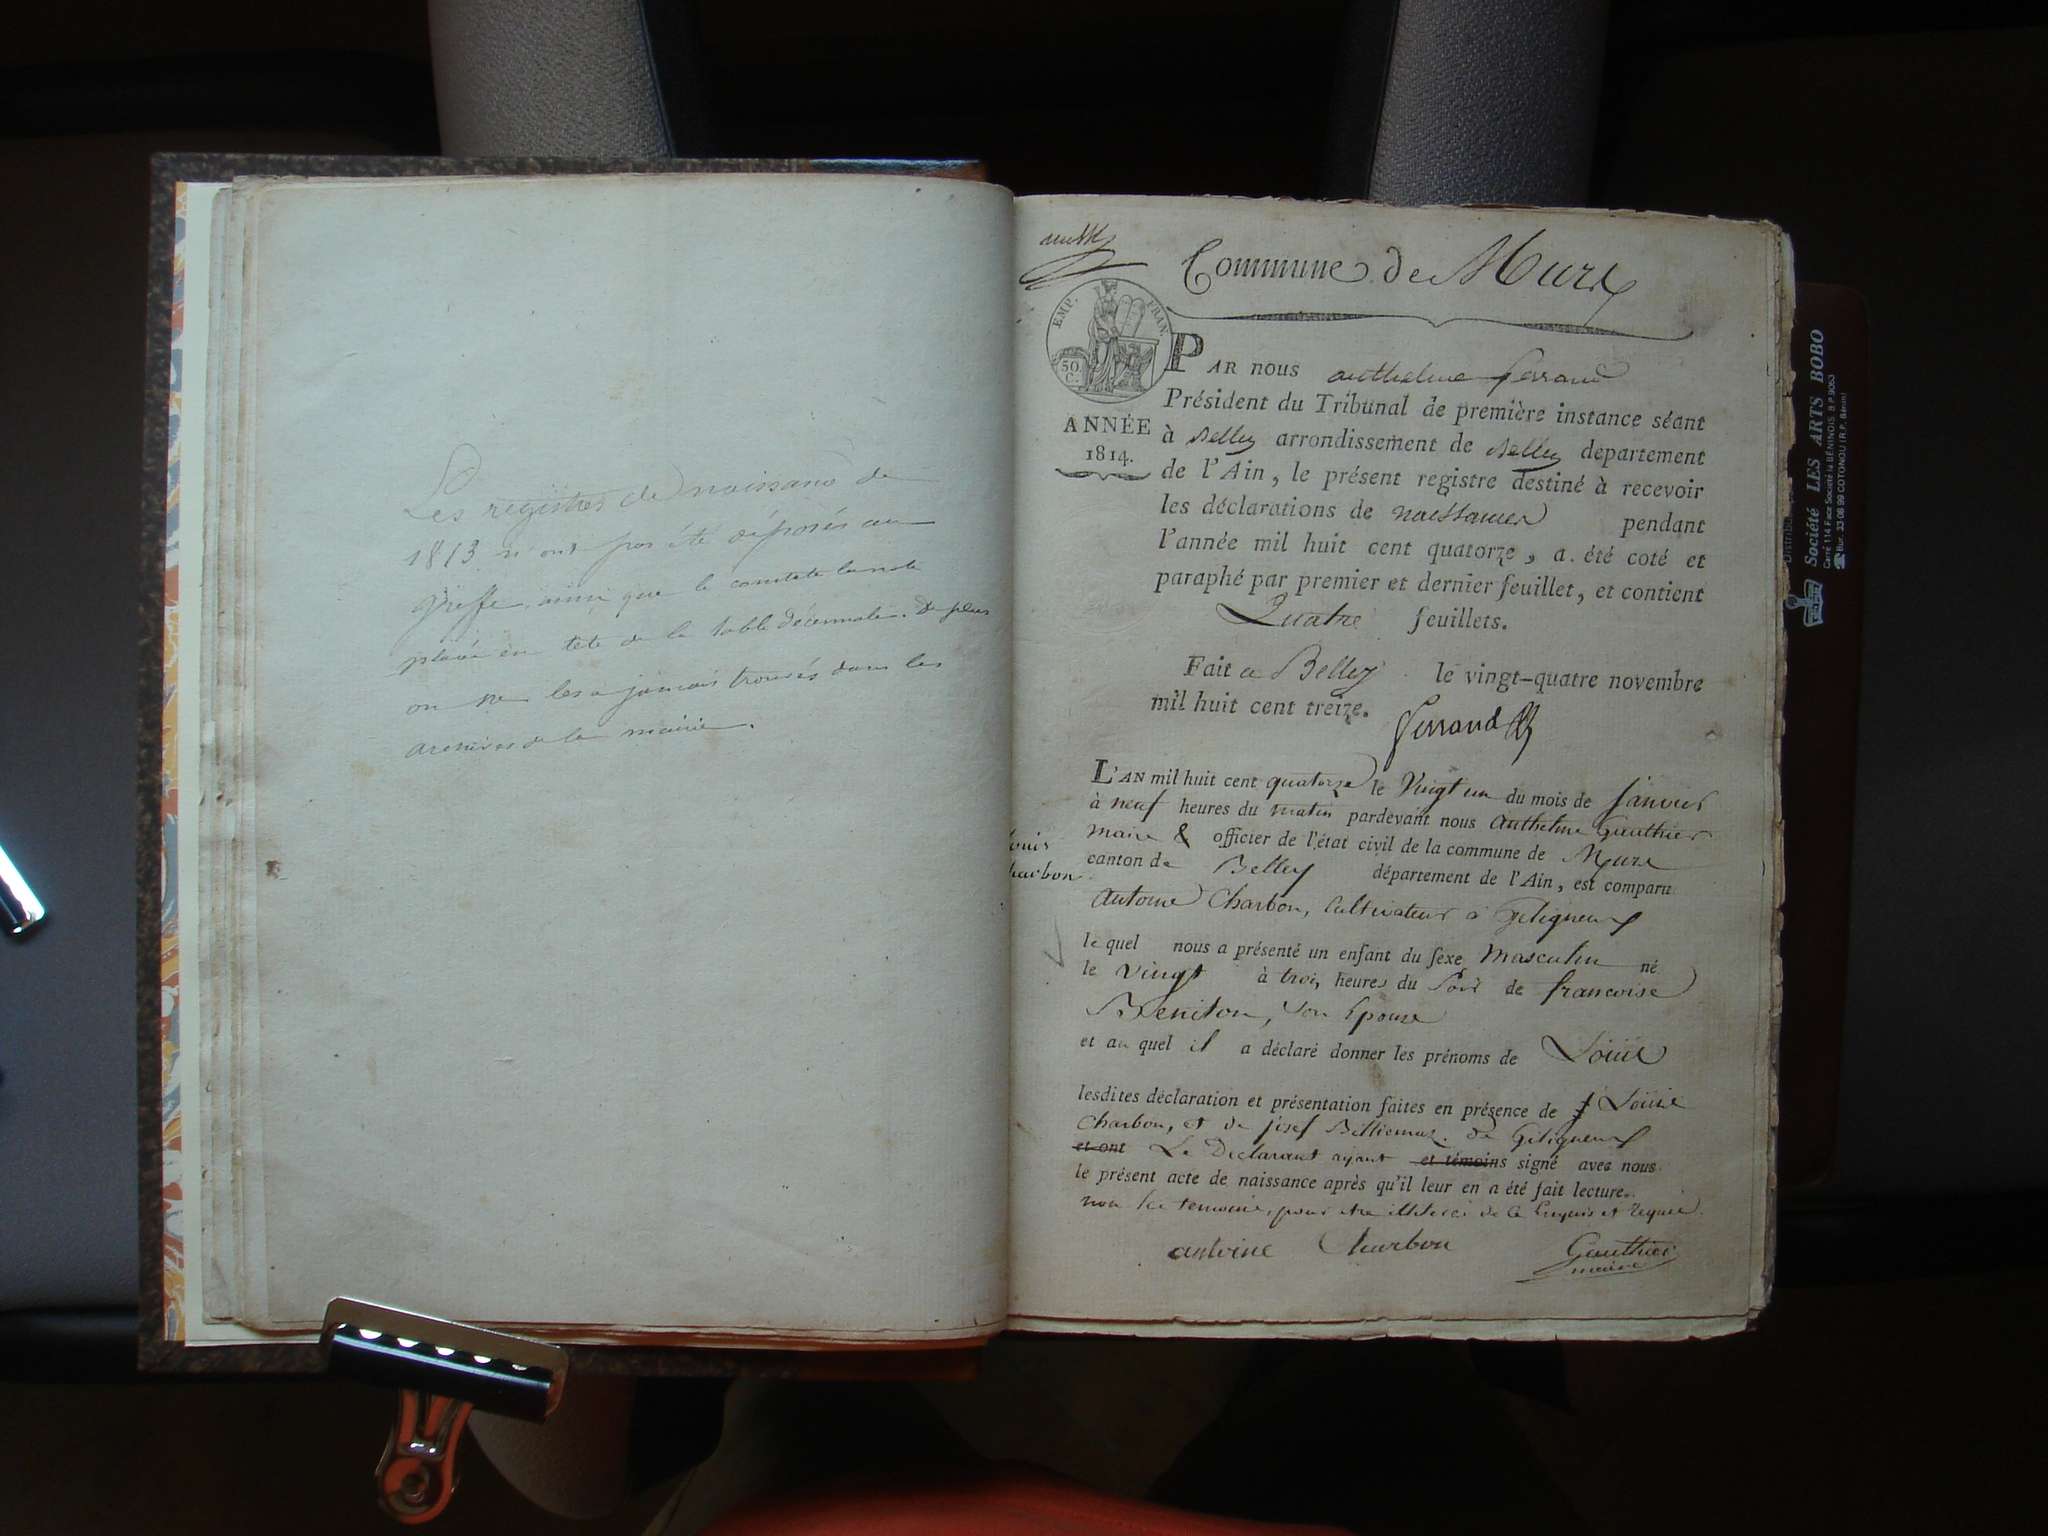 Les registres de naissance de
1813 n'ont pas été déposés au
greffe, ainsi que le constate la note
placée en tête de la table décennale. De plus
on ne les a jamais trouvés dans les
archives de la mairie.
Commune de Murs
EMP. FRAN.
50 C.
ANNÉE
1814.
PAR nous anthelme ferrand
Président du Tribunal de première instance séant
à Belley arrondissement de Belley département
de l'Ain, le présent registre destiné à recevoir
les déclarations de naissances pendant
l'année mil huit cent quatorze, a été coté et
paraphé par premier et dernier feuillet, et contient
Quatre feuillets.
Fait a Belley le vingt-quatre novembre
mil huit cent treize.
ferrand
L'AN mil huit cent quatorze le Vingt un du mois de janvier
à neuf heures du matin pardevant nous Anthelme Gauthier
maire & officier de l'état civil de la commune de Murs
canton de Belley département de l'Ain, est comparu
Antoine Charbon, cultivateur à Geligneux
le quel nous a présenté un enfant du sexe masculin né
le vingt à trois heures du soir de francoise
son Epouse
et au quel il a déclaré donner les prénoms de Louis
louis
harbon
lesdites déclaration et présentation faites en présence de Louis
Charbon, et de josef Billiemaz de Geligneux
et ont Le Déclarant ayant et témoins signé avec nous
le présent acte de naissance après qu'il leur en a été fait lecture.
non les temoins, pour etre illiterés de ce Enquis et requis.
antoine Charbon
Gauthier
maire
Société LES ARTS BOBO
Carré 114 Face Société la BÉNINOIS B.P. 9053
Bur. 33 08 99 COTONOU (R.P. Bénin)